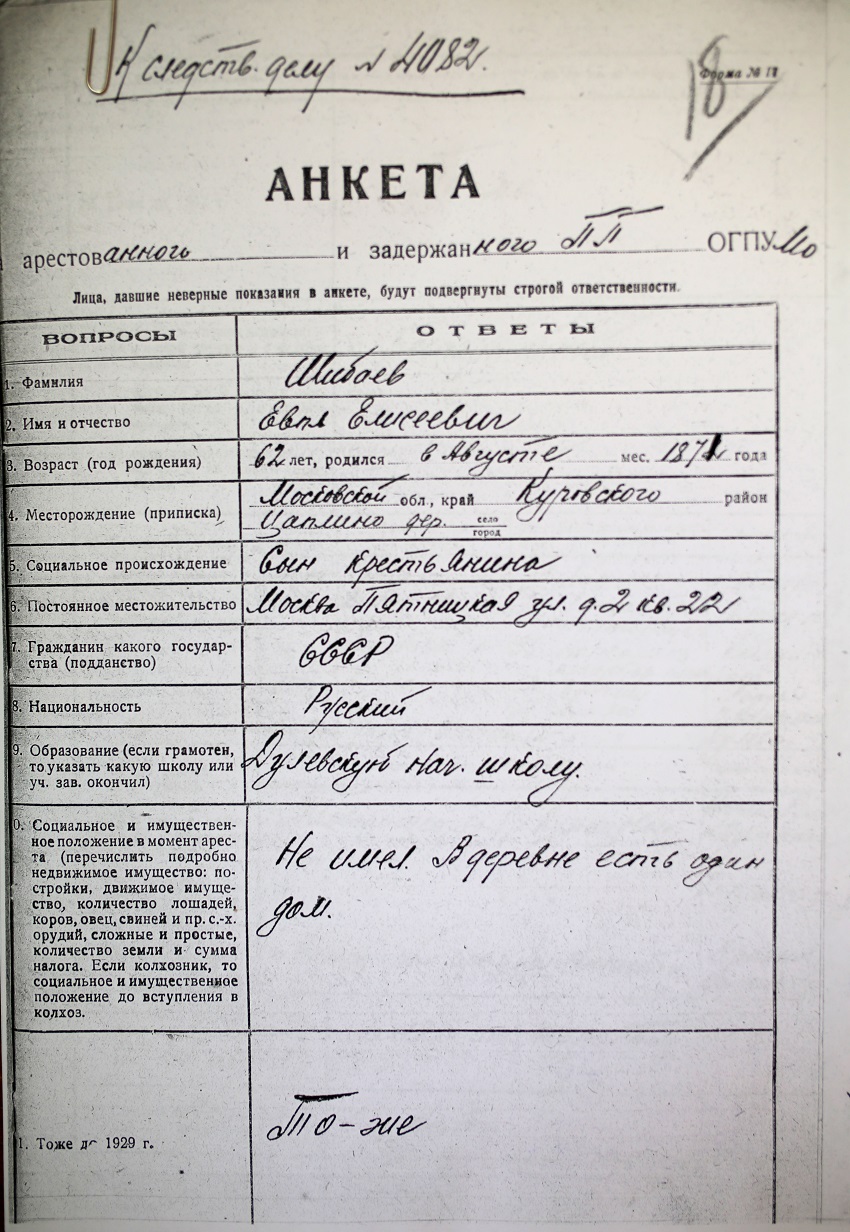 К следств. делу № 4082.
Форма № 1
18
АНКЕТА
арестованного и задержанного ПП ОГПУ МО
Лица, давшие неверные показания в анкете, будут подвергнуты строгой ответственности.
ВОПРОСЫ ОТВЕТЫ
1. Фамилия Шибаев
2. Имя и отчество Евпл Елисеевич
3. Возраст (год рождения) 62 лет, родился в Августе мес. 1871 года
4. Месторождение (приписка) Московской обл., край Куровского район
Цаплино дер. село
город
5. Социальное происхождение Сын крестьянина
6. Постоянное местожительство Москва Пятницкая ул. д. 2 кв. 22
7. Гражданин какого государ-
ства (подданство) СССР
8. Национальность Русский
9. Образование (если грамотен,
то указать какую школу или
уч. зав. окончил) Дулевскую нач. школу.
0. Социальное и имуществен-
ное положение в момент арес-
та (перечислить подробно
недвижимое имущество: по-
стройки, движимое имуще-
ство, количество лошадей,
коров, овец, свиней и пр. с.-х.
орудий, сложные и простые,
количество земли и сумма
налога. Если колхозник, то
социальное и имущественное
положение до вступления в
колхоз.
Не имел. В деревне есть один
дом.
1. Тоже до 1929 г. То-же